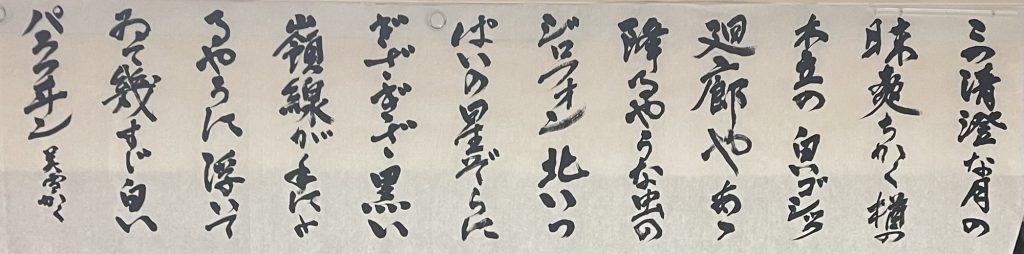 この清澄な月の
昧爽ちかく樽の
木立の白いゴシック
廻廊やあゝ
降るやうな虫の
ジロフォン 北いつ
ぱいの星ぞらに
ぎざぎざ黒い
嶺線が手にと
るやうに浮いて
ゐて幾すじ白い
パラフヰン かく